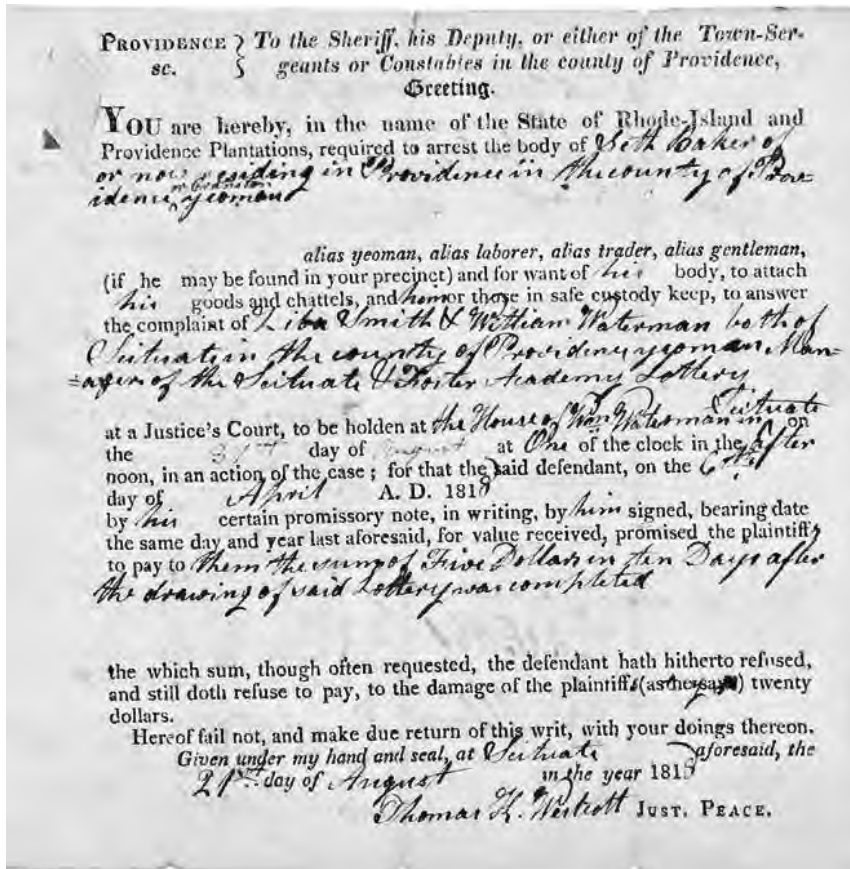 PROVIDENCE } To the Sheriff, his Deputy, or either of the Town-Ser-
sc. } geants or Constables in the county of Providence,
Greeting.
YOU are hereby, in the name of the State of Rhode-Island and
Providence Plantations, required to arrest the body of Seth Baker of
or Cranston
or now residing in Providence in the county of Prov-
idence yeoman
alias yeoman, alias laborer, alias trader, alias gentleman,
(if he may be found in your precinct) and for want of his body, to attach
his goods and chattels, and or those in safe custody keep, to answer
the complaint of Ziba Smith & William Waterman both of
Scituate in the county of Providence yeoman Man-
=agers of the Scituate & Foster Academy Lottery
at a Justice's Court, to be holden at the House of Wm Waterman in Scituate on
the 31st day of August at One of the clock in the after
noon, in an action of the case; for that the said defendant, on the 6th
day of April A. D. 1818
by his certain promissory note, in writing, by him signed, bearing date
the same day and year last aforesaid, for value received, promised the plaintiffs
to pay to them the sum of Five Dollars in ten Days after
the drawing of said Lottery was completed
the which sum, though often requested, the defendant hath hitherto refused,
and still doth refuse to pay, to the damage of the plaintiffs (as they say) twenty
dollars.
Hereof fail not, and make due return of this writ, with your doings thereon.
Given under my hand and seal, at Scituate aforesaid, the
21st day of August in the year 1818
Thomas K. JUST. PEACE.